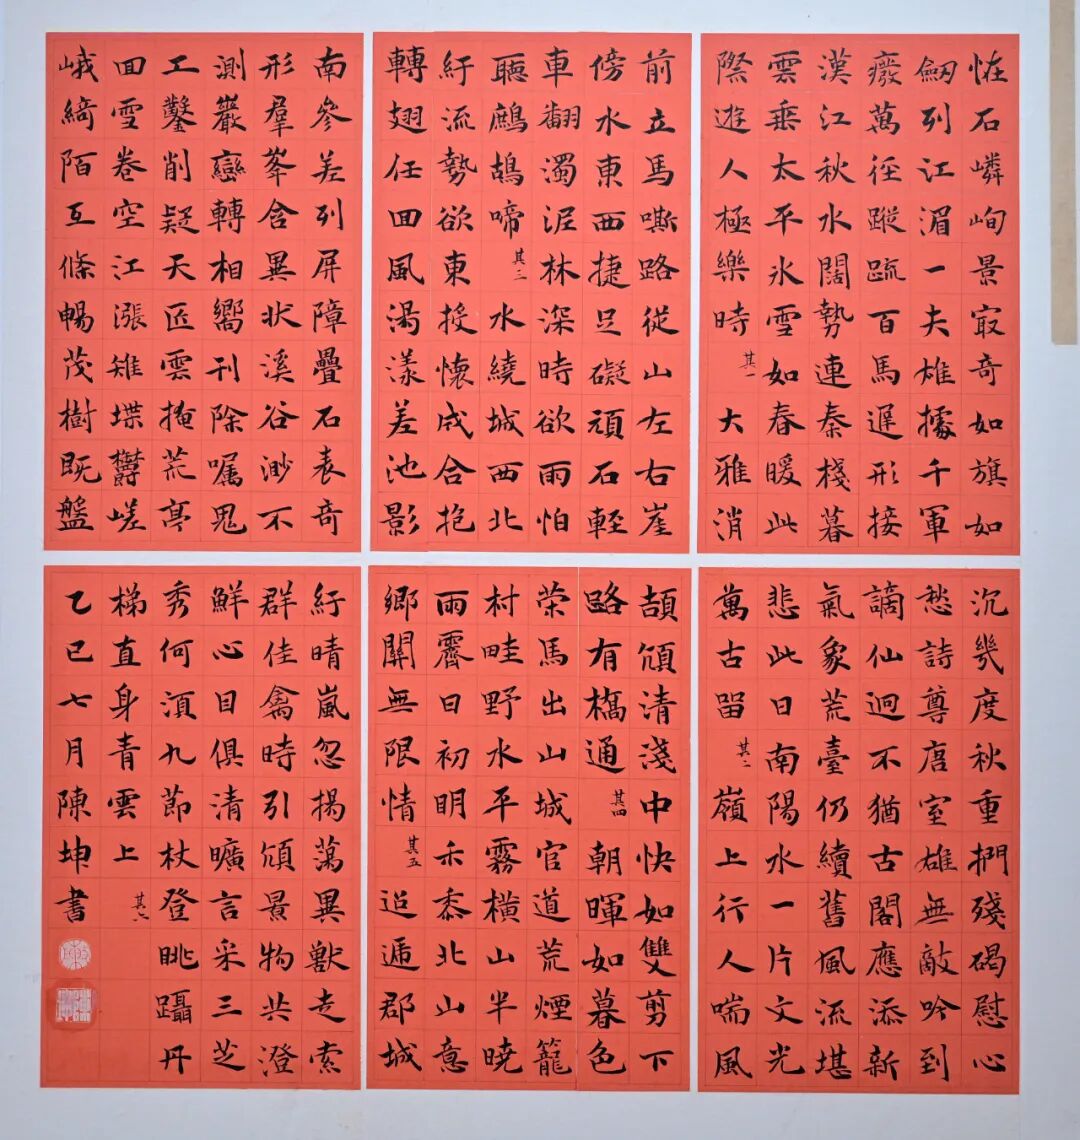 怪石嶙峋景最奇如旗如
劒列江湄一夫雄據千軍
廢萬徑蹤疏百馬遲形接
漢江秋水闊勢連秦棧暮
雲垂太平氷雪如春暖此
際遊人極樂時其一大雅消
沉幾度秋重捫殘碣慰心
愁詩尊唐室雄無敵吟到
謫仙迥不猶古閣應添新
氣象荒臺仍續舊風流堪
悲此日南陽水一片文光
萬古留其二嶺上行人喘風
前立馬嘶路從山左右崖
傍水東西捷足礙頑石輕
車翻濁泥林深時欲雨怕
聽鷓鴣啼其三水繞城西北
紆流勢欲東授懷成合抱
轉翅任回風蕩漾差池影
頡頏清淺中快如雙剪下
路有橋通其四朝暉如暮色
榮馬出山城官道荒煙籠
村畦野水平霧橫山半曉
雨霽日初明禾黍北山意
鄉關無限情其五迢遞郡城
南參差列屏障疊石表奇
形羣峯含異狀溪谷渺不
測巖巒轉相嚮刊除囑鬼
工鑿削疑天匠雲掩荒亭
回雪卷空江漲雉堞欝嵯
峨綺陌互條暢茂樹既盤
紆晴嵐忽揚蕩異獸走索
群佳禽時引頏景物共澄
鮮心目俱清曠言采三芝
秀何須九節杖登眺躡丹
梯直身青雲上其七
乙巳七月陳坤書